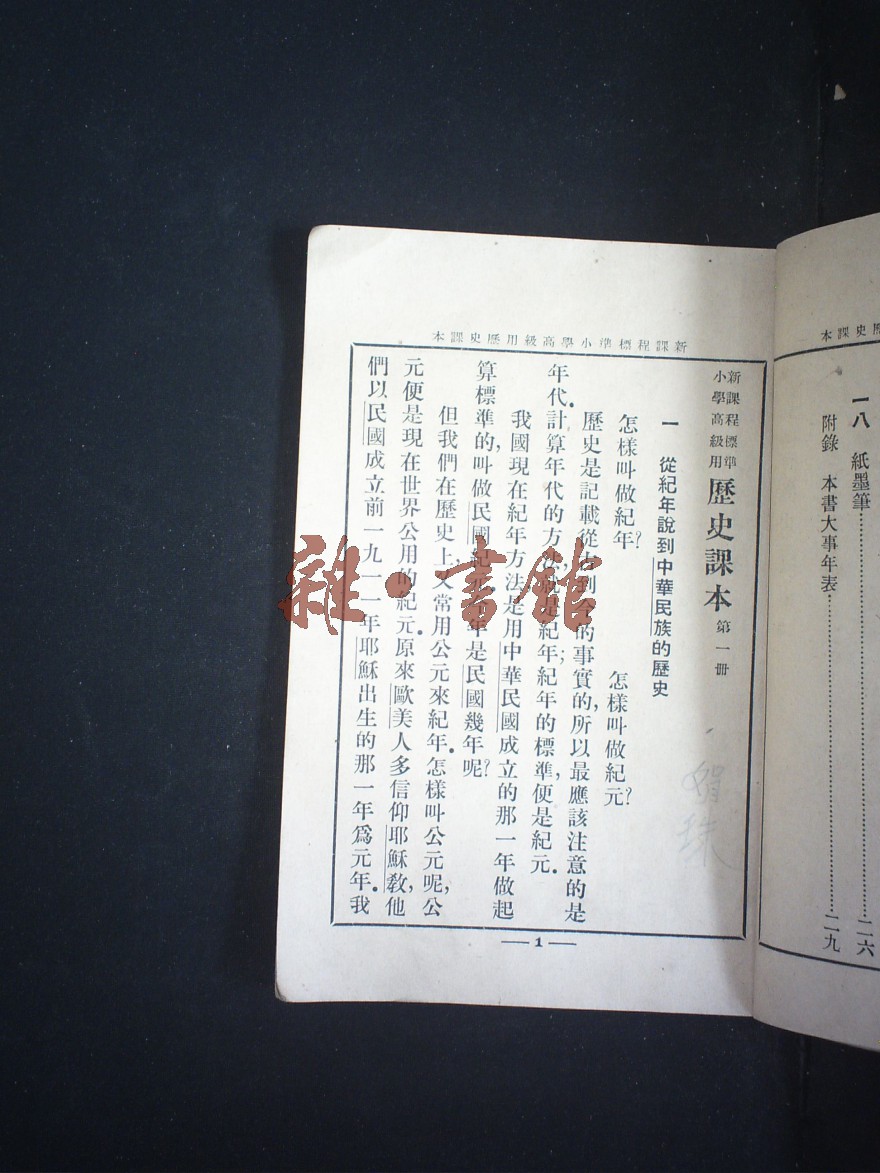 歷史課本
一八 紙墨筆……二六
附錄 本書大事年表……二九
新課程標準小學高級用歷史課本
新課程標準
小學高級用
歷史課本 第一冊
一 從紀年說到中華民族的歷史
怎樣叫做紀年? 怎樣叫做紀元?
歷史是記載從古到今的事實的,所以最應該注意的是
年代.計算年代的方法,就是紀年;紀年的標準,便是紀元.
我國現在紀年方法,是用中華民國成立的那一年做起
算標準的,叫做民國紀元.今年是民國幾年呢?
但我們在歷史上,又常用公元來紀年.怎樣叫公元呢,公
元便是現在世界公用的紀元.原來歐美人多信仰耶穌教,他
們以民國成立前一九一一年耶穌出生的那一年爲元年.我
1
雜·書館